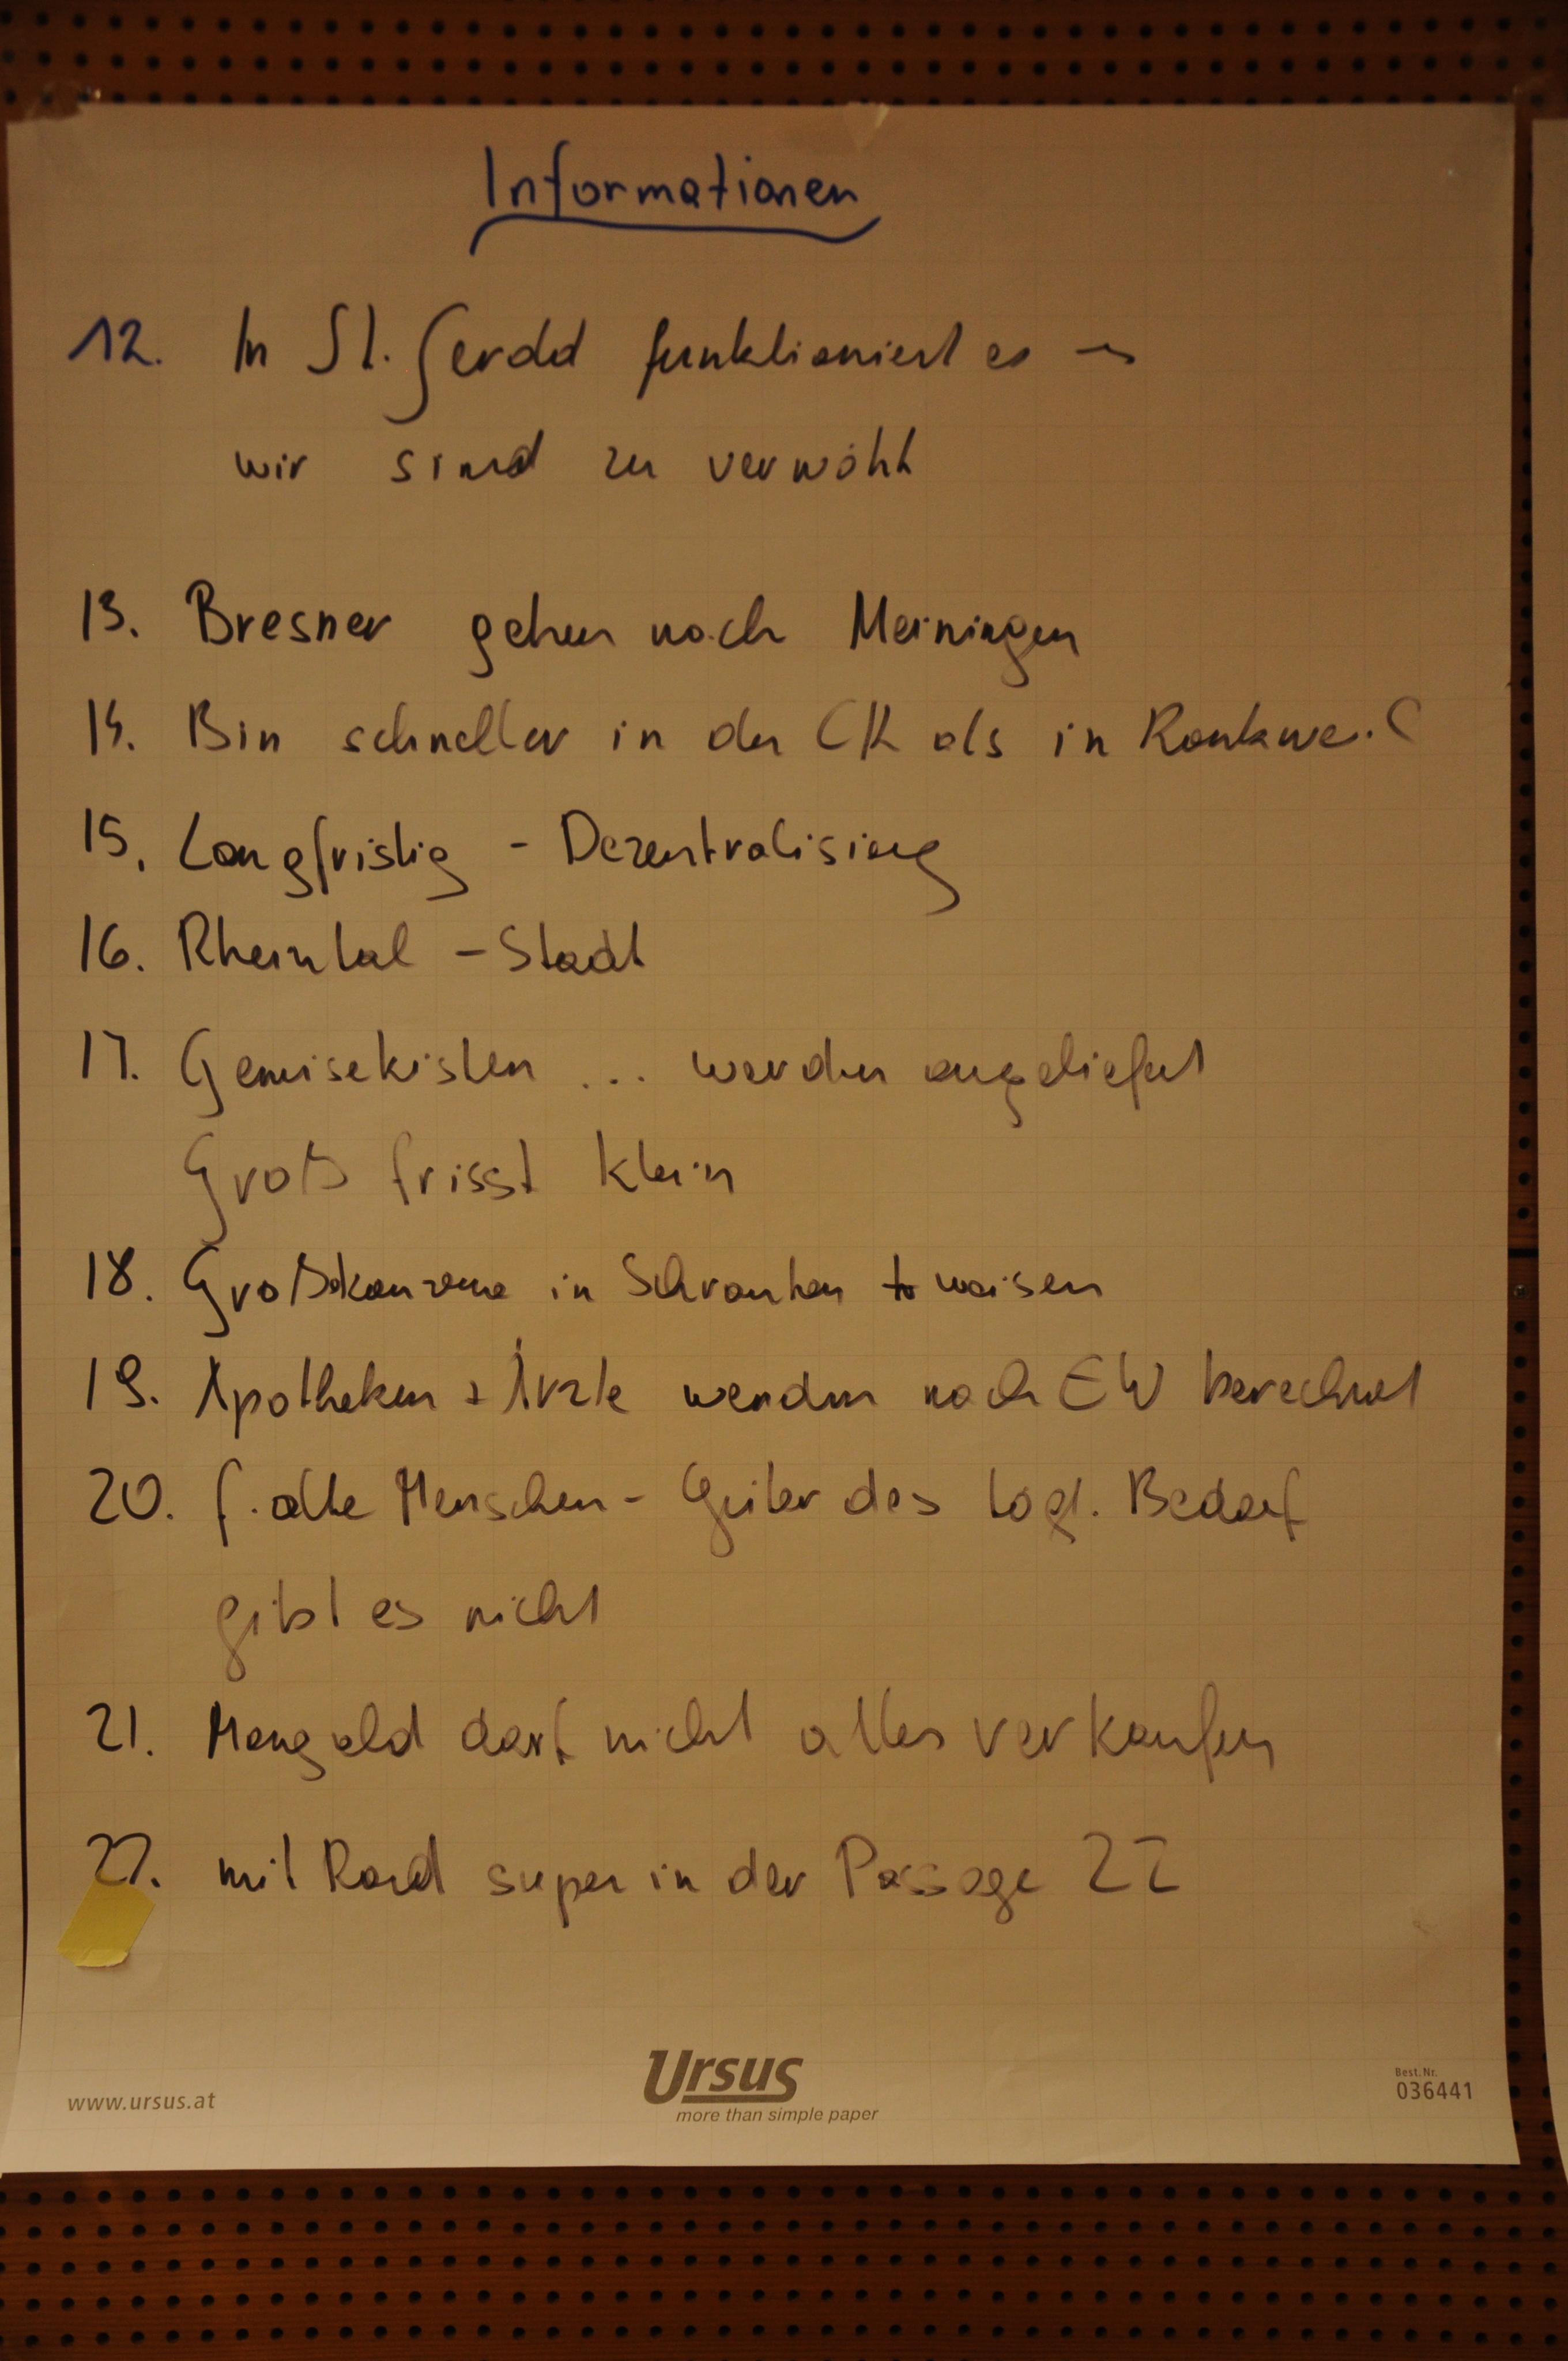 Informationen
12. In St. Gerold funktioniert es →
wir sind zu verwöhnt
13. Bresner gehen nach Meiningen
14. Bin schneller in der CH als in
15. Langfristig - Dezentralising
16. Rheintal - Stadt
17. Gemüsekisten ... werden angeliefert
Groß frisst klein
18. Großkonzerne in Schranken weisen
19. Apotheken + Ärzte werden nach EW berechnet
20. f. alte Menschen - Güter des tägl. Bedarf
gibt es nicht
21. Mangold darf nicht alles verkaufen
22. mit Rad super in der Passage
Ursus
more than simple paper
www.ursus.at
Best.Nr.
036441